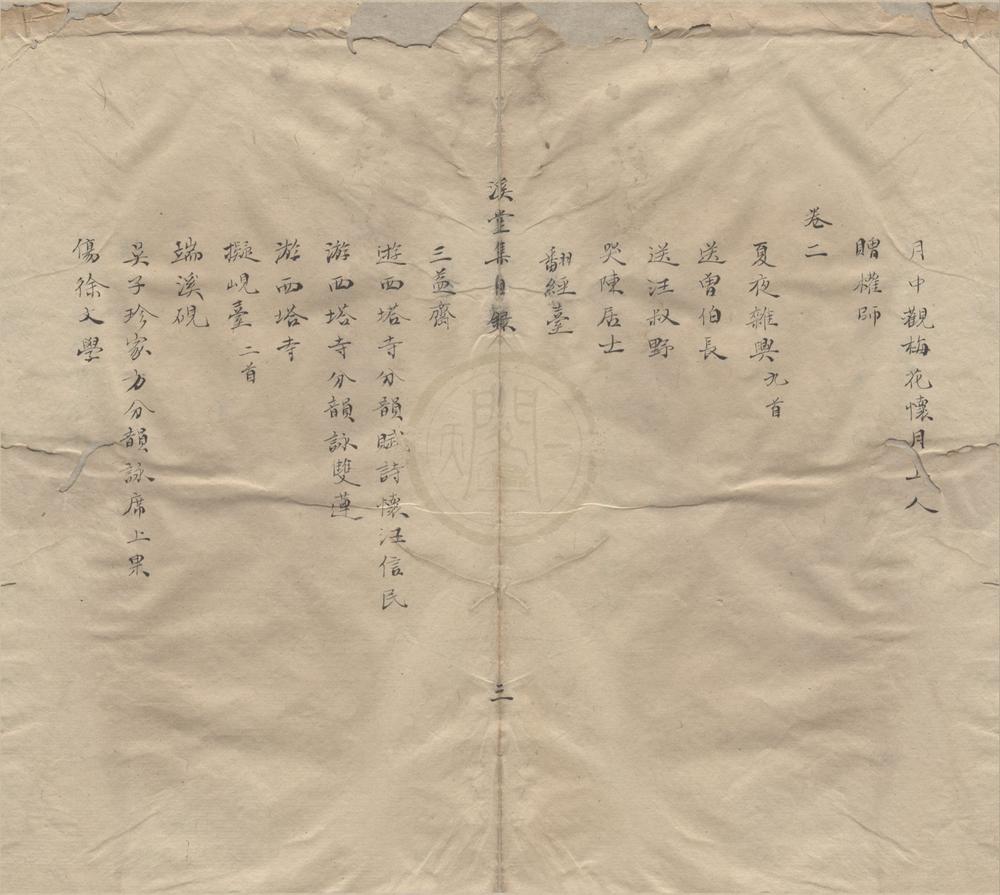 月中觀梅花懷月上人
贈權師
卷二
夏夜雜興九首
送曾伯長
送汪叔野
哭陳居士
翻經臺
溪堂集目錄
三
三益齋
遊西塔寺分韻賦詩懷汪信民
游西塔寺分韻詠雙蓮
游西塔寺
擬峴臺二首
端溪硯
吳子珍家方分韻詠席上果
傷徐文學